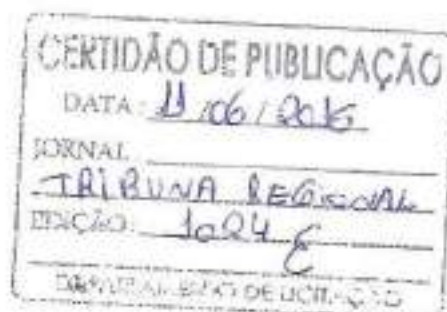 CERTIDÃO DE PUBLICAÇÃO
DATA: 11/06/2016
JORNAL
TRIBUNA REGIONAL
EDIÇÃO: 1024
DEPARTAMENTO DE LICITAÇÃO